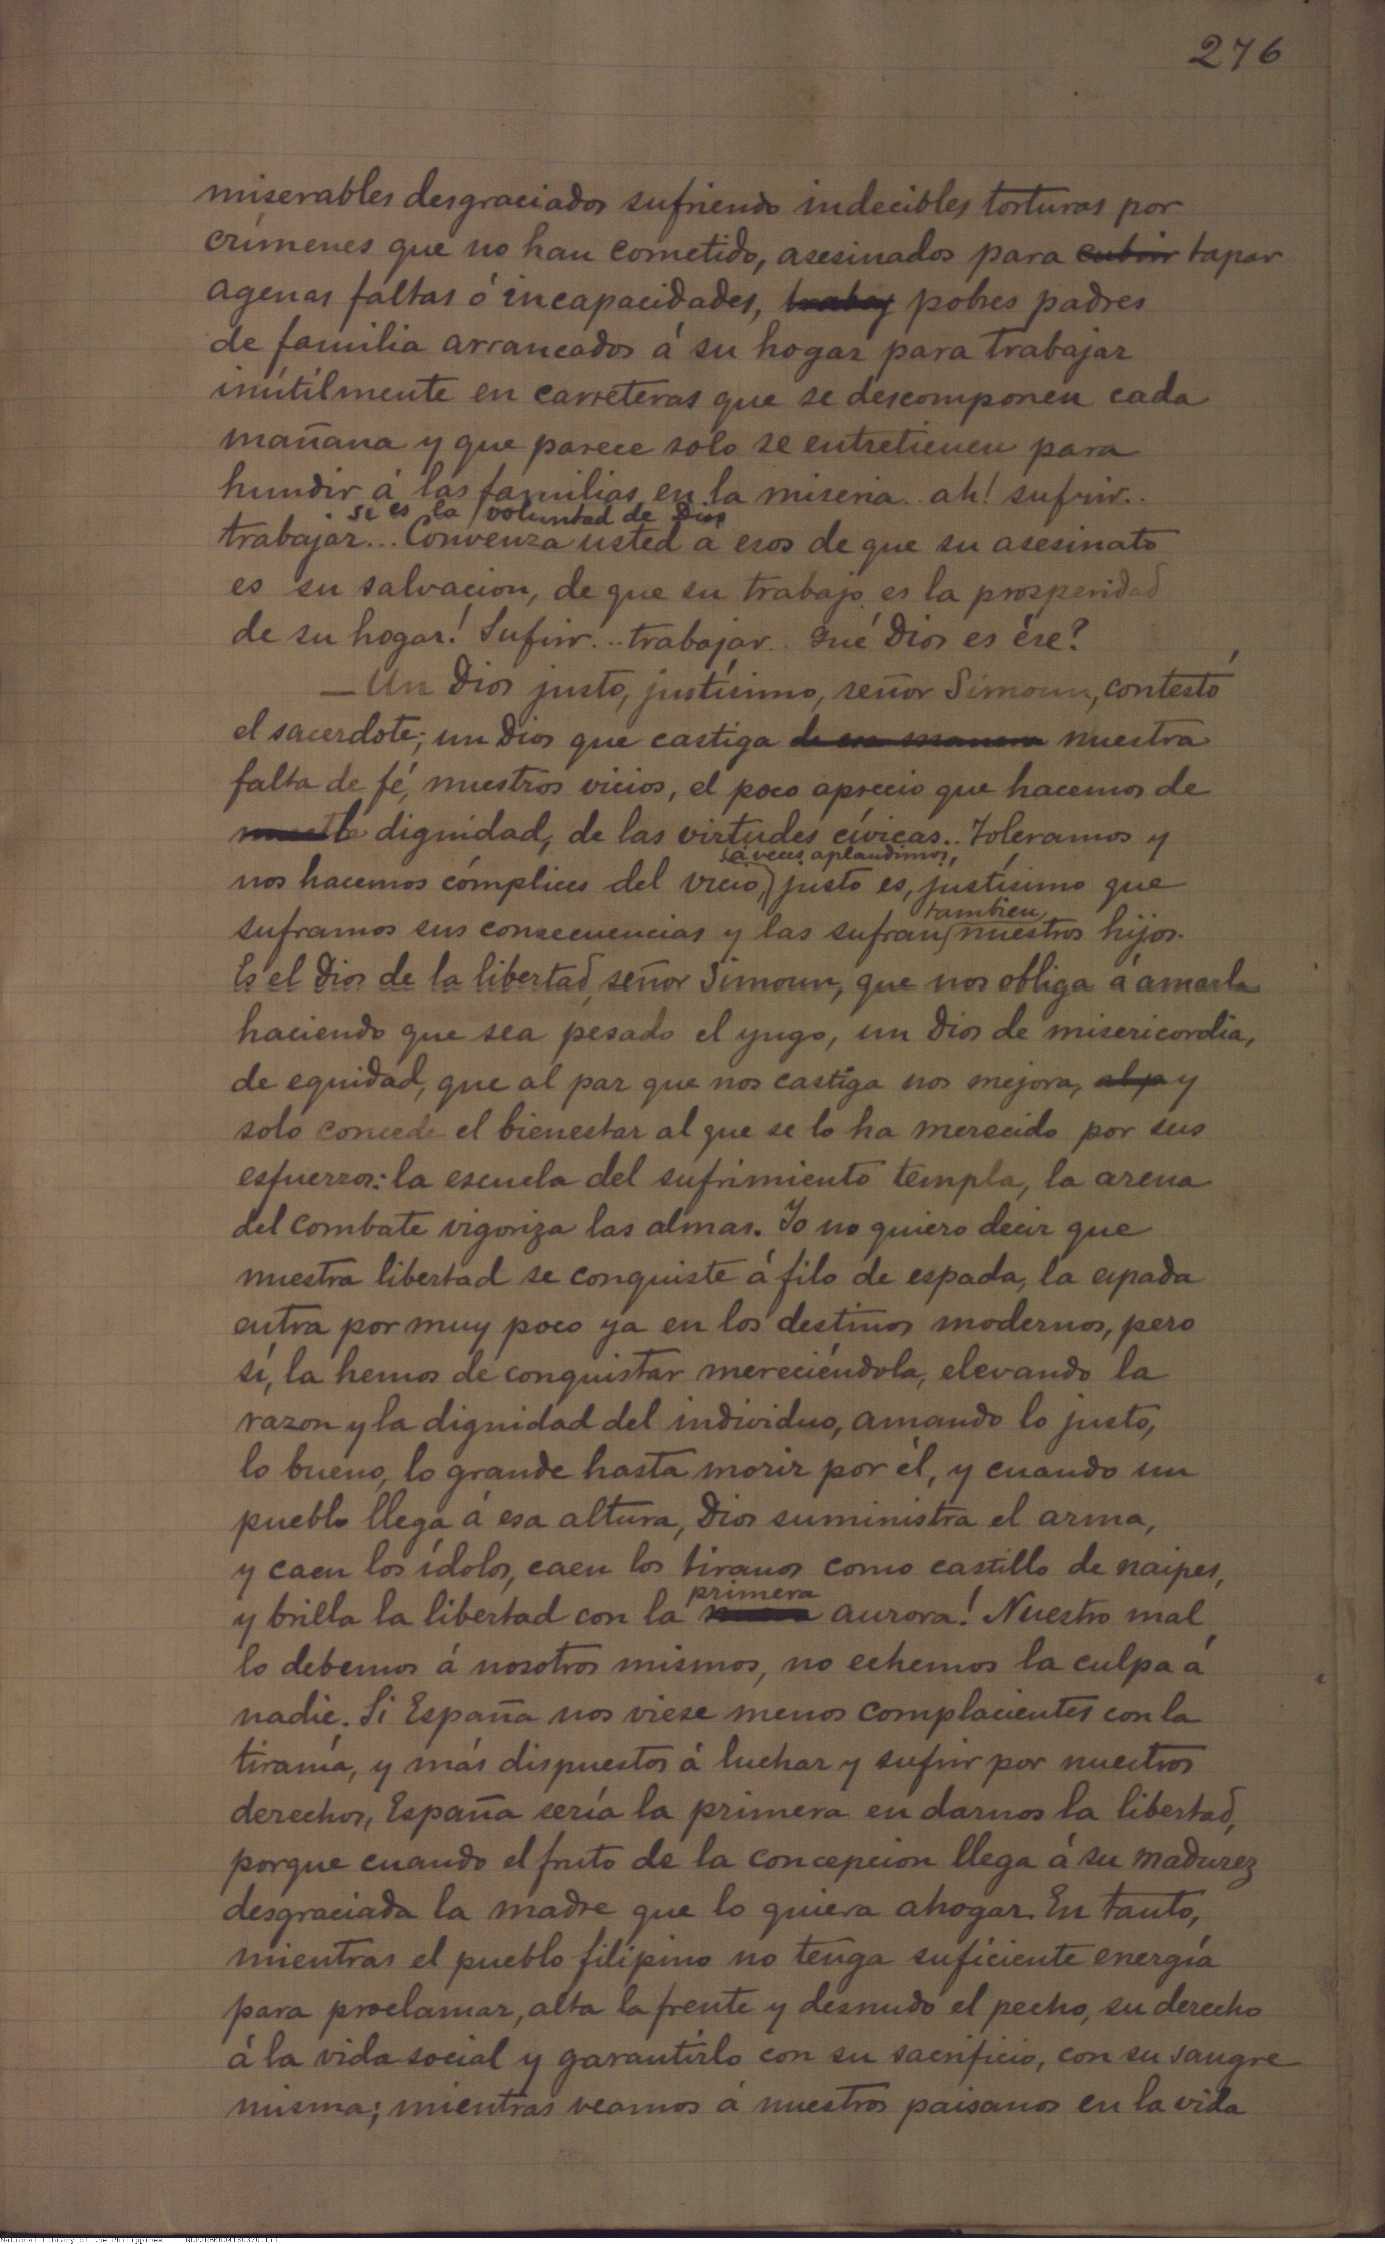 276
miserables desgraciados sufriendo indecibles torturas por
crímenes que no han cometido, asesinados para cubrir tapar
agenas faltas ó incapacidades, trabaj pobres padres
de familia arrancados á su hogar para trabajar
inútilmente en carreteras que se descomponen cada
mañana y que parece solo se entretienen para
hundir á las familias en la miseria.. ah! sufrir..
si es la voluntad de Dios
trabajar... Convenza usted á esos de que su asesinato
es su salvacion, de que su trabajo es la prosperidad
de su hogar! Sufrir... trabajar.. Qué Dios es ése?
— Un Dios justo, justísimo, señor Simoun, contestó
el sacerdote; un Dios que castiga de esa manera nuestra
falta de fé, nuestros vicios, el poco aprecio que hacemos de
dignidad, de las virtudes cívicas.. Toleramos y
á veces aplaudimos,
nos hacemos cómplices del vicio, justo es, justísimo que
tambien
suframos sus consecuencias y las sufran nuestros hijos.
Es el Dios de la libertad, señor Simoun, que nos obliga á amarla
haciendo que sea pesado el yugo, un Dios de misericordia,
de equidad, que al par que nos castiga nos mejora, al p y
solo concede el bienestar al que se lo ha merecido por sus
esfuerzos: la escuela del sufrimiento templa, la arena
del combate vigoriza las almas. Yo no quiero decir que
nuestra libertad se conquiste á filo de espada, la espada
entra por muy poco ya en los destinos modernos, pero
sí, la hemos de conquistar mereciéndola, elevando la
razon y la dignidad del individuo, amando lo justo,
lo bueno, lo grande hasta morir por él, y cuando un
pueblo llega á esa altura, Dios suministra el arma,
y caen los ídolos, caen los tiranos como castillo de naipes,
primera
y brilla la libertad con la aurora! Nuestro mal
lo debemos á nosotros mismos, no echemos la culpa á
nadie. Si España nos viese menos complacientes con la
tiranía, y más dispuestos á luchar y sufrir por nuestros
derechos, España sería la primera en darnos la libertad,
porque cuando el fruto de la concepcion llega á su madurez
desgraciada la madre que lo quiera ahogar. En tanto,
mientras el pueblo filipino no tenga suficiente energía
para proclamar, alta la frente y desnudo el pecho, su derecho
á la vida social y garantirlo con su sacrificio, con su sangre
misma; mientras veamos á nuestros paisanos en la vida